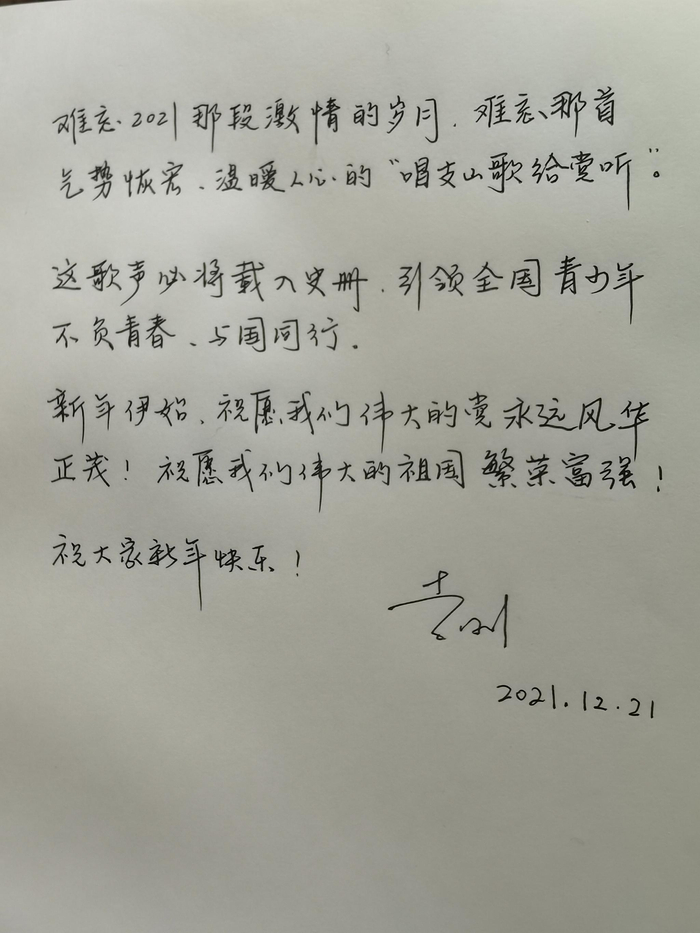 难忘2021那段激情的岁月，难忘那首
气势恢宏、温暖人心的“唱支山歌给党听”。
这歌声必将载入史册，引领全国青少年
不负青春、与国同行。
新年伊始，祝愿我们伟大的党永远风华
正茂！祝愿我们伟大的祖国繁荣富强！
祝大家新年快乐！
2021.12.21